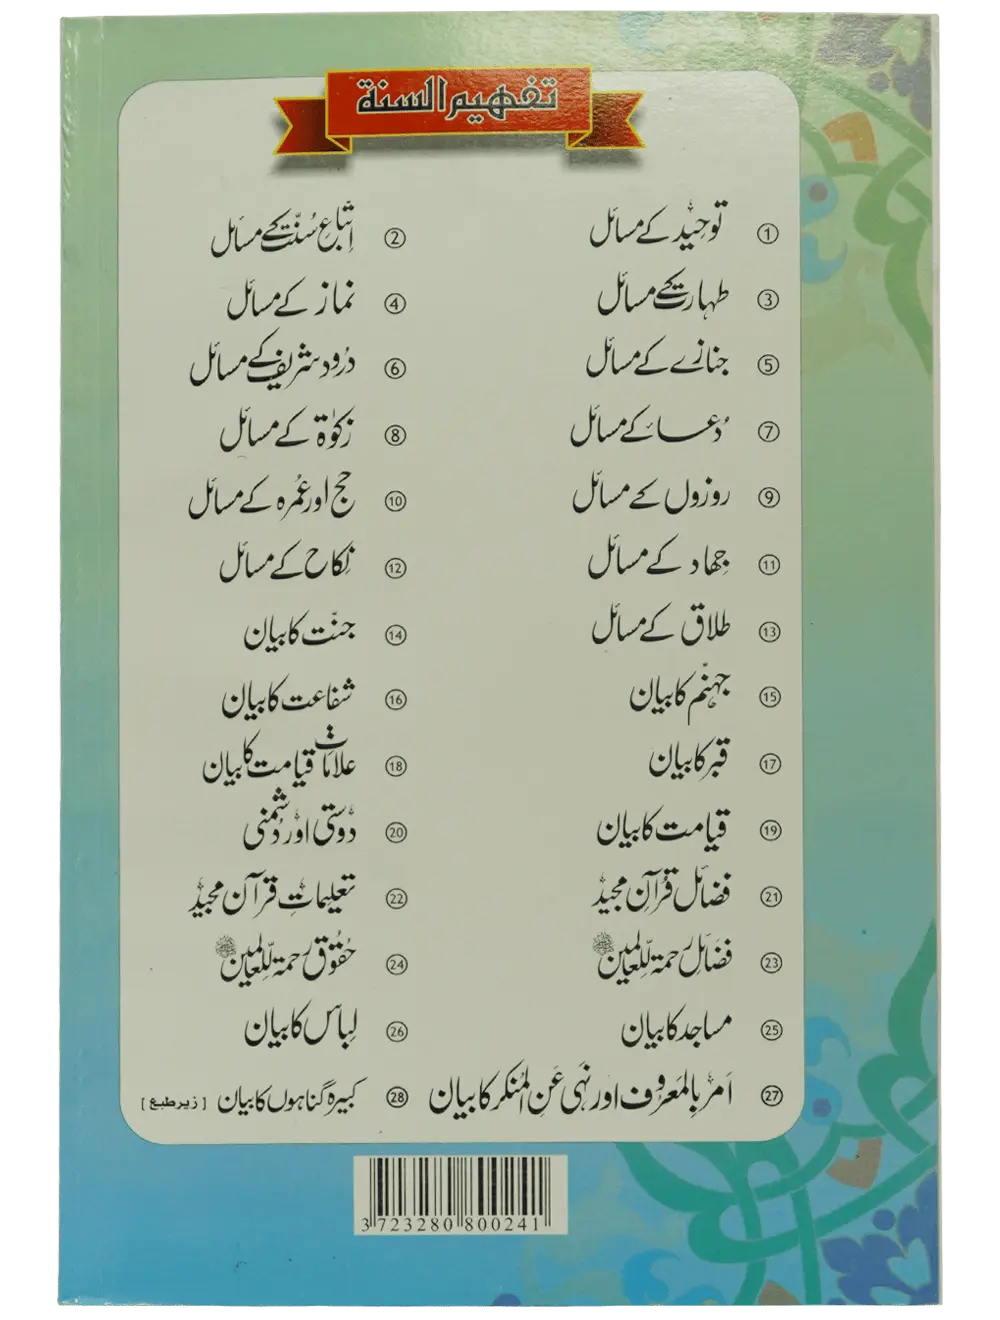 تفہیم السنۃ
① توحید کے مسائل
② اتباعِ سُنّت کے مسائل
③ طہارت کے مسائل
④ نماز کے مسائل
⑤ جنازے کے مسائل
⑥ درود شریف کے مسائل
⑦ دُعا کے مسائل
⑧ زکوٰۃ کے مسائل
⑨ روزوں کے مسائل
⑩ حج اور عُمرہ کے مسائل
⑪ جِہاد کے مسائل
⑫ نِکاح کے مسائل
⑬ طلاق کے مسائل
⑭ جنّت کا بیان
⑮ جہنّم کا بیان
⑯ شفاعت کا بیان
⑰ قبر کا بیان
⑱ علاماتِ قیامت کا بیان
⑲ قیامت کا بیان
⑳ دوستی اور دُشمنی
㉑ فضائلِ قُرآن مجید
㉒ تعلیماتِ قرآن مجید
㉓ فضائلِ رحمۃ لِّلعالمین ﷺ
㉔ حُقُوق رحمۃ لِّلعالمین ﷺ
㉕ مساجد کا بیان
㉖ لِباس کا بیان
㉗ اَمر بِالمَعروف اور نہی عَنِ المُنکر کا بیان
㉘ کبیرہ گناہوں کا بیان [زیر طبع]
3 723280 800241